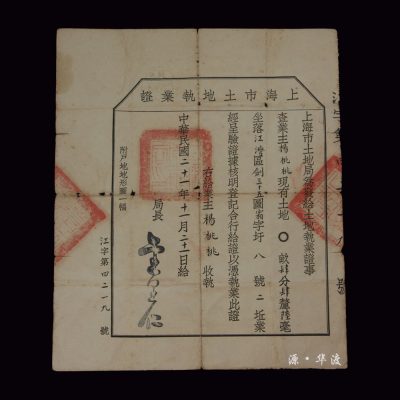 上海市土地執業證
上海市土地局發給土地執業證事
查業主楊桃桃現有土地〇畝肆分肆釐陸毫
坐落江灣區劍三十五圖翁字圩八號二坵業
經呈驗證據核明登記合行給證以憑執業此證
右給業主楊桃桃收執
中華民國二十一年十一月二十二日給
局長
附戶地地形圖一幅
江字第四二一九號
號
源·华渡